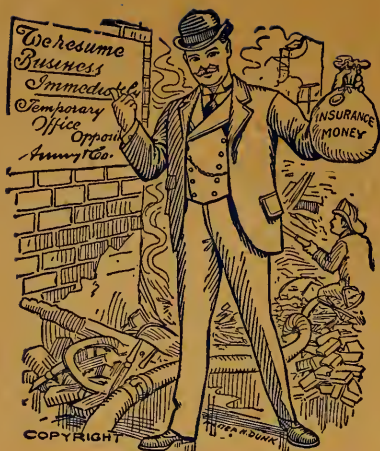 We resume
Business
Immediately
Temporary
Office
& Co.
INSURANCE
MONEY
COPYRIGHT
DUNK